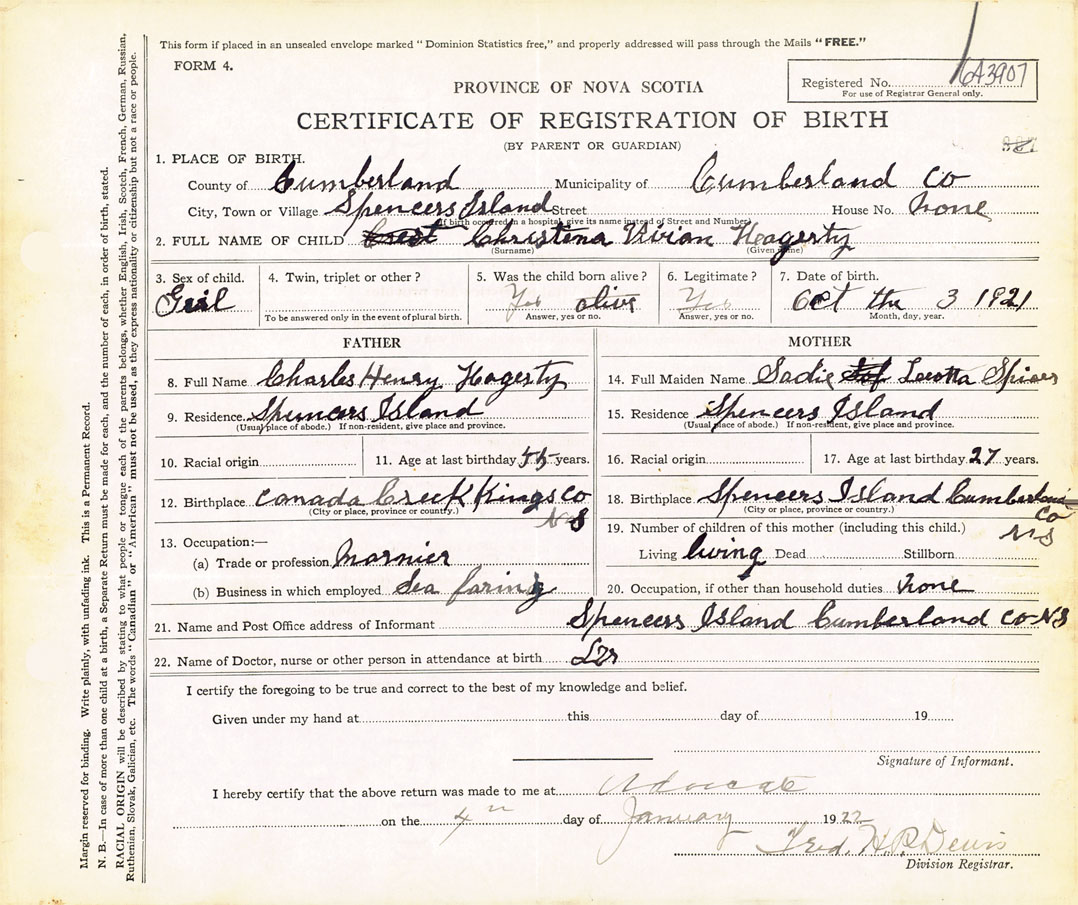 This form if placed in an unsealed envelope marked "Dominion Statistics free," and properly addressed will pass through the Mails "FREE."
FORM 4.
Registered No. 6A3907
For use of Registrar General only.
PROVINCE OF NOVA SCOTIA
CERTIFICATE OF REGISTRATION OF BIRTH
(BY PARENT OR GUARDIAN)
1. PLACE OF BIRTH.
County of Cumberland Municipality of Cumberland Co
City, Town or Village Spencers Island Street House No. none
(If birth occurred in a hospital, give its name instead of Street and Number)
2. FULL NAME OF CHILD Christena Vivian Hagerty
(Surname) (Given name)
3. Sex of child. 4. Twin, triplet or other? 5. Was the child born alive? 6. Legitimate? 7. Date of birth.
Geil Yes alive Yes Oct th 3 1921
To be answered only in the event of plural birth. Answer, yes or no. Answer, yes or no. Month, day, year.
FATHER
8. Full Name Charles Henry Hagerty
9. Residence Spencers Island
(Usual place of abode.) If non-resident, give place and province.
10. Racial origin 11. Age at last birthday 55 years.
12. Birthplace Canada Creek Kings Co
(City or place, province or country.) NS
13. Occupation:—
(a) Trade or profession Marnier
(b) Business in which employed Sea faring
MOTHER
14. Full Maiden Name Sadie Leotta Spicer
15. Residence Spencers Island
(Usual place of abode.) If non-resident, give place and province.
16. Racial origin 17. Age at last birthday 27 years.
18. Birthplace Spencers Island Cumberland
(City or place, province or country.) Co
19. Number of children of this mother (including this child.) NS
Living living Dead Stillborn
20. Occupation, if other than household duties none
21. Name and Post Office address of Informant Spencers Island Cumberland Co NS
22. Name of Doctor, nurse or other person in attendance at birth
I certify the foregoing to be true and correct to the best of my knowledge and belief.
Given under my hand at this day of 19
Signature of Informant.
I hereby certify that the above return was made to me at Advocate
on the 4th day of January 1922
Fred. H. P. Dewis
Division Registrar.
Margin reserved for binding. Write plainly, with unfading ink. This is a Permanent Record.
N. B.—In case of more than one child at a birth, a Separate Return must be made for each, and the number of each, in order of birth, stated.
RACIAL ORIGIN will be described by stating to what people or tongue each of the parents belongs, whether English, Irish, Scotch, French, German, Russian,
Ruthenian, Slovak, Galician, etc. The words "Canadian" or "American" must not be used, as they express nationality or citizenship but not a race or people.